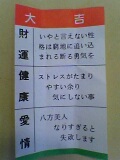 大吉
財運
いやと言えない性
格は窮地に追い込
まれる断る勇気を
健康
ストレスがたまり
やすい余り
気にしない事
愛情
八方美人
なりすぎると
失敗します